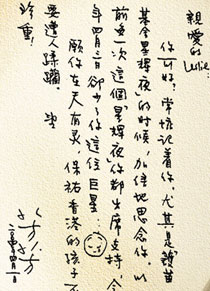 親愛的Leslie:
你可好?常惦記着你,尤其是韻苗
基金星輝夜」的時候,加倍地思念你,以
前每一次這個「星輝夜」你都出席支持,今
年四月二日卻少了你這位巨星…
願你在天有灵,保祐香港的孩子不
要遭人蹂躪。
珍重!